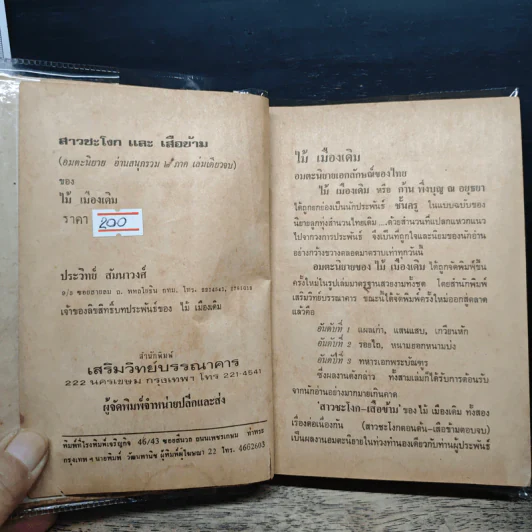 สาวชะโงก และ เสือข้าม
(อมตะนิยาย อ่านสนุกรวม ๒ ภาค เล่มเดียวจบ)
ของ
ไม้ เมืองเดิม
ราคา 200
ประวิทย์ สัมมาวงศ์
เจ้าของลิขสิทธิ์บทประพันธ์ของ ไม้ เมืองเดิม
สำนักพิมพ์
เสริมวิทย์บรรณาคาร
222 นครเขษม กรุงเทพฯ โทร 221-4541
ผู้จัดพิมพ์จำหน่ายปลีกและส่ง
พิมพ์ที่โรงพิมพ์เจริญกิจ 46/43 ซอยสันวอ ถนนเพชรเกษม ท่าพระ
กรุงเทพ ฯ นายพิมพ์ วัฒนพานิช ผู้พิมพ์ผู้โฆษณา 22 โทร. 4662603
ไม้ เมืองเดิม
อมตะนิยายเอกลักษณ์ของไทย
ไม้ เมืองเดิม หรือ ก้าน พึ่งบุญ ณ อยุธยา
ได้ถูกยกย่องเป็นนักประพันธ์ ชั้นครู ในแบบฉบับของ
นิยายลูกทุ่งสำนวนไทยเดิม....ด้วยสำนวนที่แปลกแหวกแนว
ไปจากวงการประพันธ์ จึงเป็นที่ถูกใจและนิยมของนักอ่าน
อย่างกว้างขวางตลอดมาตราบเท่าทุกวันนี้
อมตะนิยายของ ไม้ เมืองเดิม ได้ถูกจัดพิมพ์ขึ้น
ครั้งใหม่ในรูปเล่มมาตรฐานสวยงามทั้งชุด โดยสำนักพิมพ์
เสริมวิทย์บรรณาคาร ขณะนี้ได้จัดพิมพ์ครั้งใหม่ออกสู่ตลาด
แล้วคือ
อันดับที่ 1 แผลเก่า, แสนแสบ, เกวียนหัก
อันดับที่ 2 รอยไถ, หนามยอกหนามบ่ง
อันดับที่ 3 ทหารเอกพระบัณฑูร
ซึ่งผลงานดังกล่าว ทั้งสามเล่มก็ได้รับการต้อนรับ
จากนักอ่านอย่างมากมายเกินคาด
"สาวชะโงก-เสือข้าม" ของ ไม้ เมืองเดิม ทั้งสอง
เรื่องต่อเนื่องกัน (สาวชะโงกตอนต้น-เสือข้ามตอนจบ)
เป็นผลงานอมตะนิยายในท่วงทำนองเดียวกับที่ท่านผู้ประพันธ์